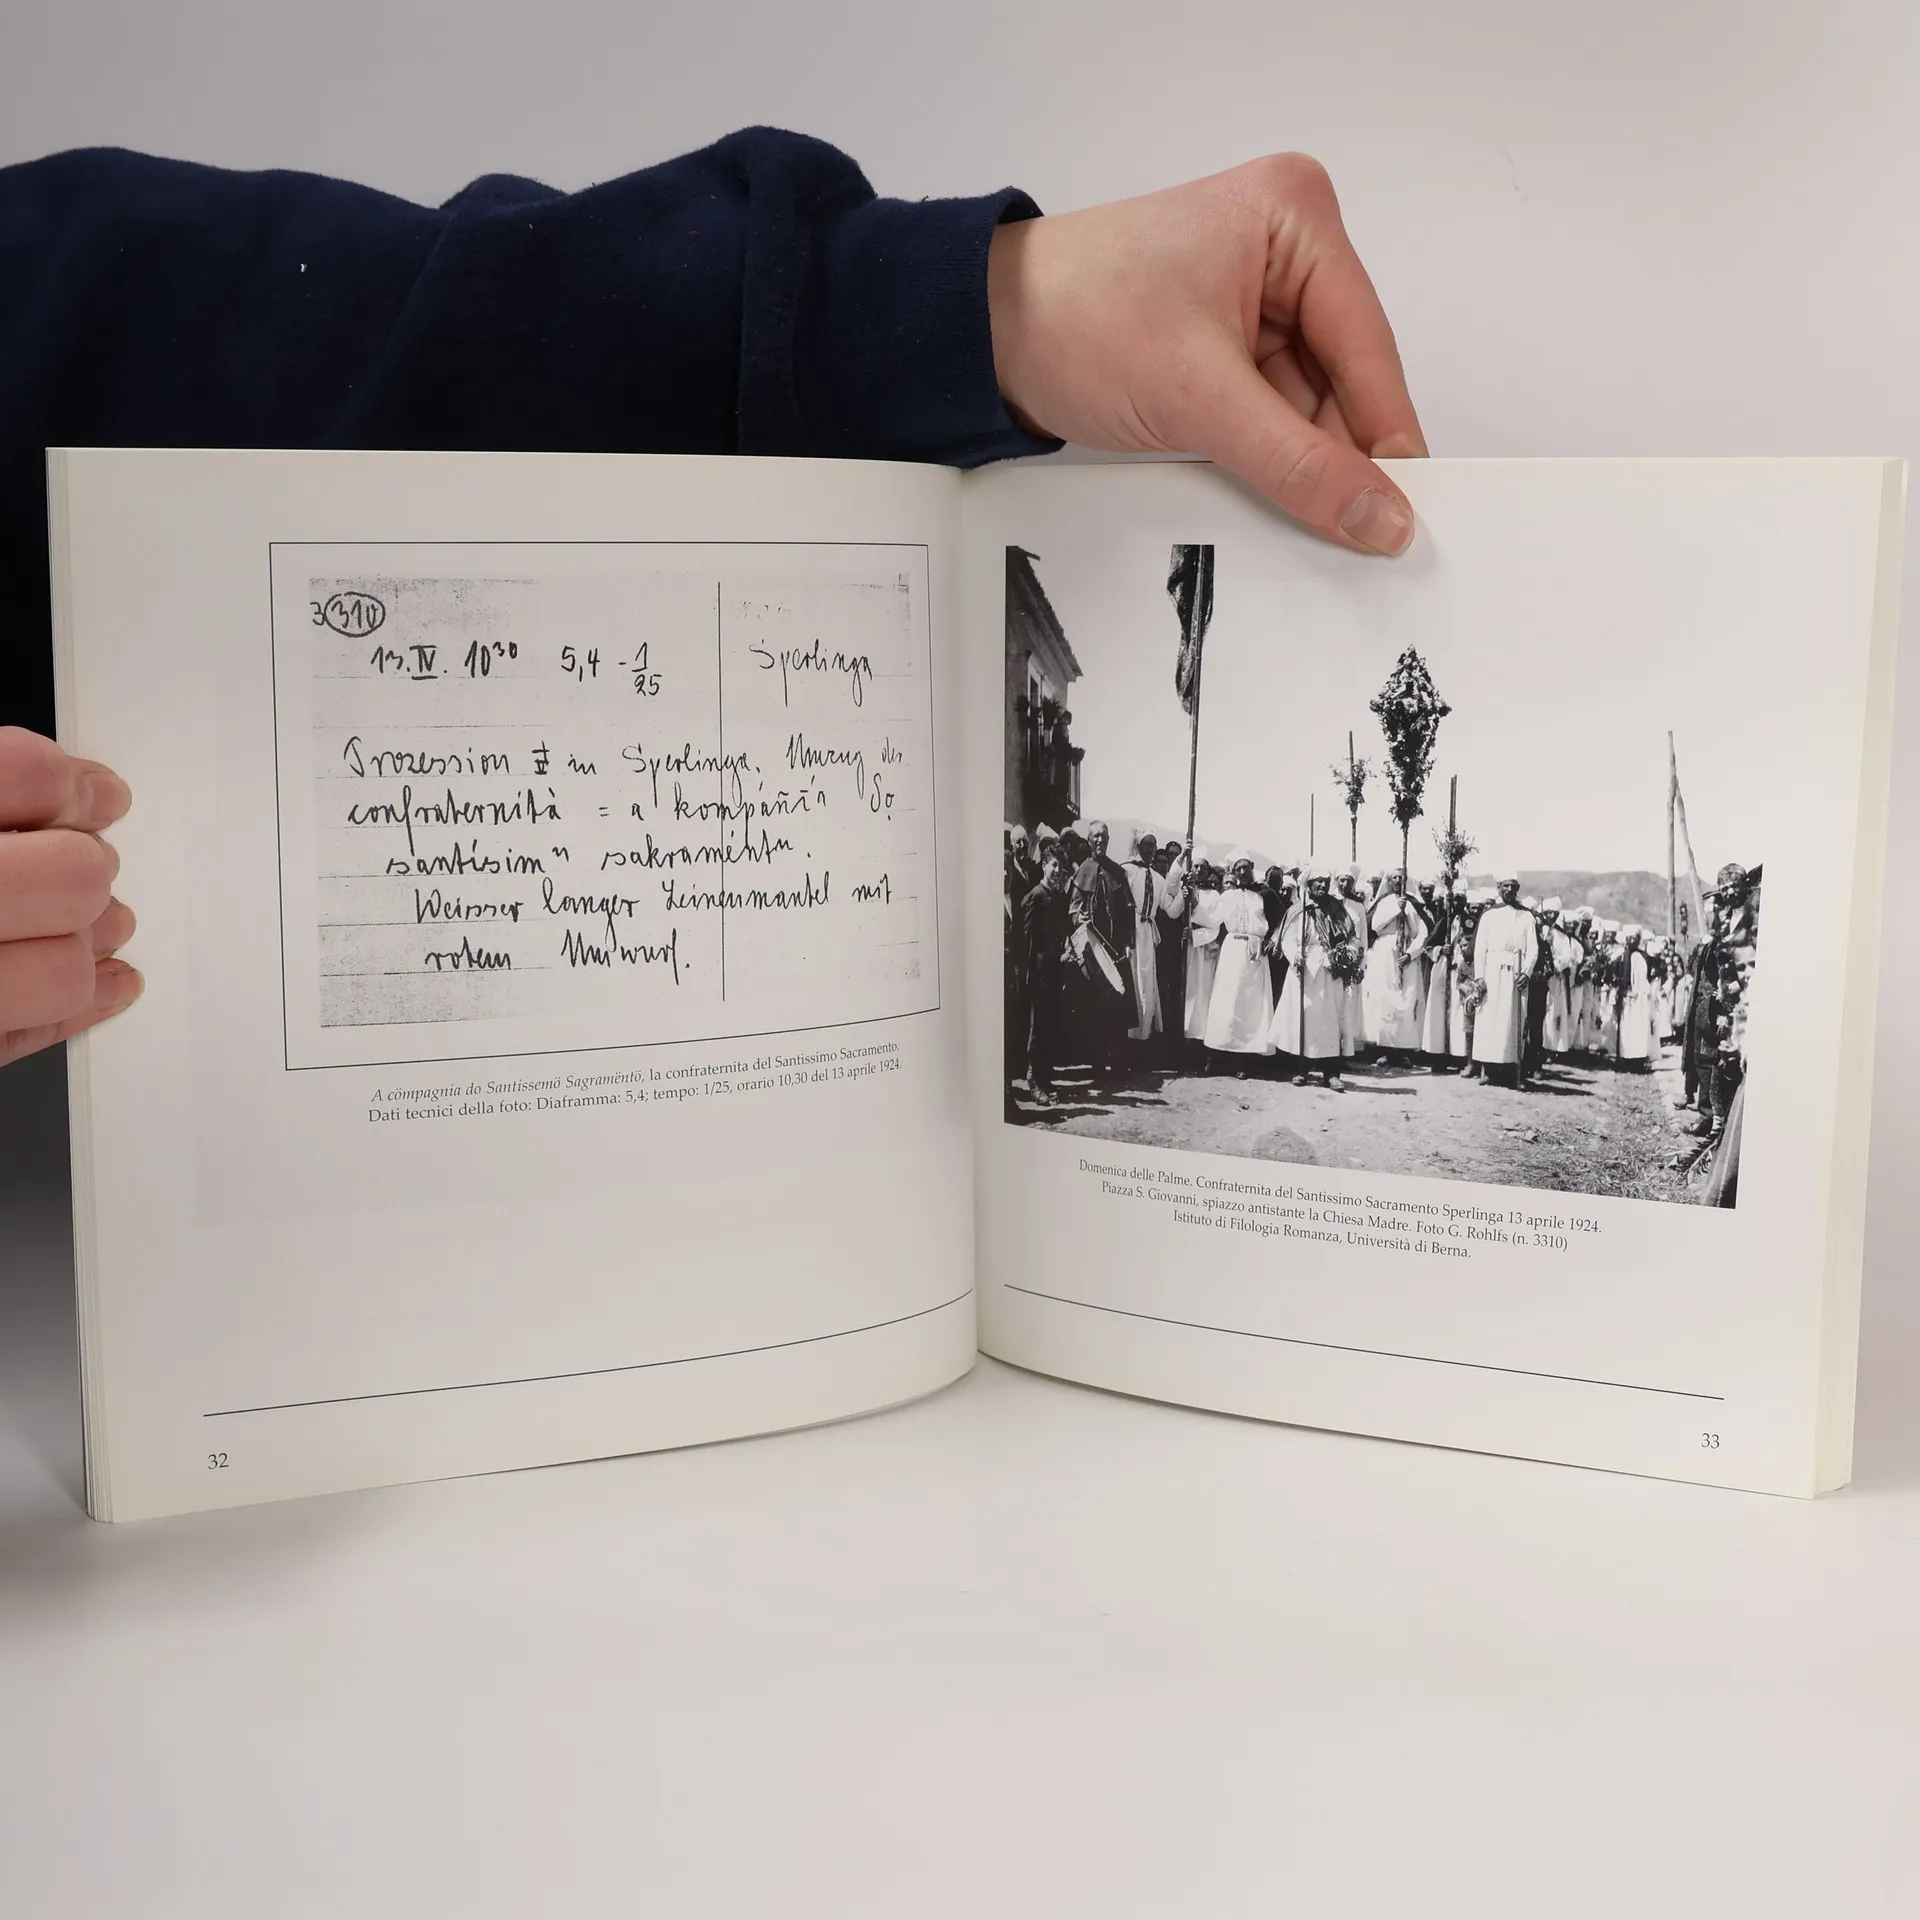 3(310)
13.IV. 10³⁰ 5,4 - 1/25
Sperlinga
Prozession in Sperlinga. Umzug der
confraternità = a
sakraméntu.
Weisser langer Leinenmantel mit
rotem Umwurf.
A cömpagnia do Santissemö Sagramëntö, la confraternita del Santissimo Sacramento.
Dati tecnici della foto: Diaframma: 5,4; tempo: 1/25, orario 10,30 del 13 aprile 1924.
32
Domenica delle Palme. Confraternita del Santissimo Sacramento Sperlinga 13 aprile 1924.
Piazza S. Giovanni, spiazzo antistante la Chiesa Madre. Foto G. Rohlfs (n. 3310)
Istituto di Filologia Romanza, Università di Berna.
33